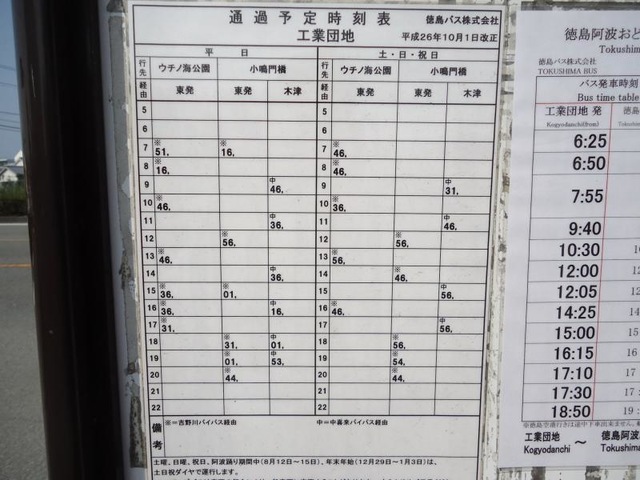 通過予定時刻表
徳島バス株式会社
工業団地
平成26年10月1日改正
平 日
土・日・祝日
行先 ウチノ海公園 小鳴門橋 行先 ウチノ海公園 小鳴門橋
経由 東発 東発 木津 経由 東発 東発 木津
5 5
6 6
7 ※51. ※16. 7 ※46.
8 ※16. 8 ※46.
9 中46. 9 中31.
10 ※46. 10 ※36.
11 中36. 11 中46.
12 ※56. 12 ※56.
13 ※46. 13 ※56.
14 中36. 14 ※46.
15 ※36. ※01. 15 中56.
16 ※36. 中16. 16 ※46.
17 ※31. 17 中56.
18 ※31. 中01. 18 ※56.
19 ※01. 中53. 19 ※54.
20 ※44. 20 ※44.
21 21
22 22
備考
※=吉野川バイパス経由 中=中喜来バイパス経由
土曜、日曜、祝日、阿波踊り期間中(8月12日~15日)、年末年始(12月29日~1月3日)は、
土日祝ダイヤで運行します。
徳島阿波おど
Tokushim
徳島バス株式会社
TOKUSHIMA BUS
バス発車時刻
Bus time table
工業団地 発 徳島
Kogyodanchi(from) Tokushim
6:25
6:50
7:55
9:40
10:30
12:00
12:05
14:25
15:00
16:15
17:10
17:30
18:50
工業団地 ~ 徳島阿波
Kogyodanchi Tokushima